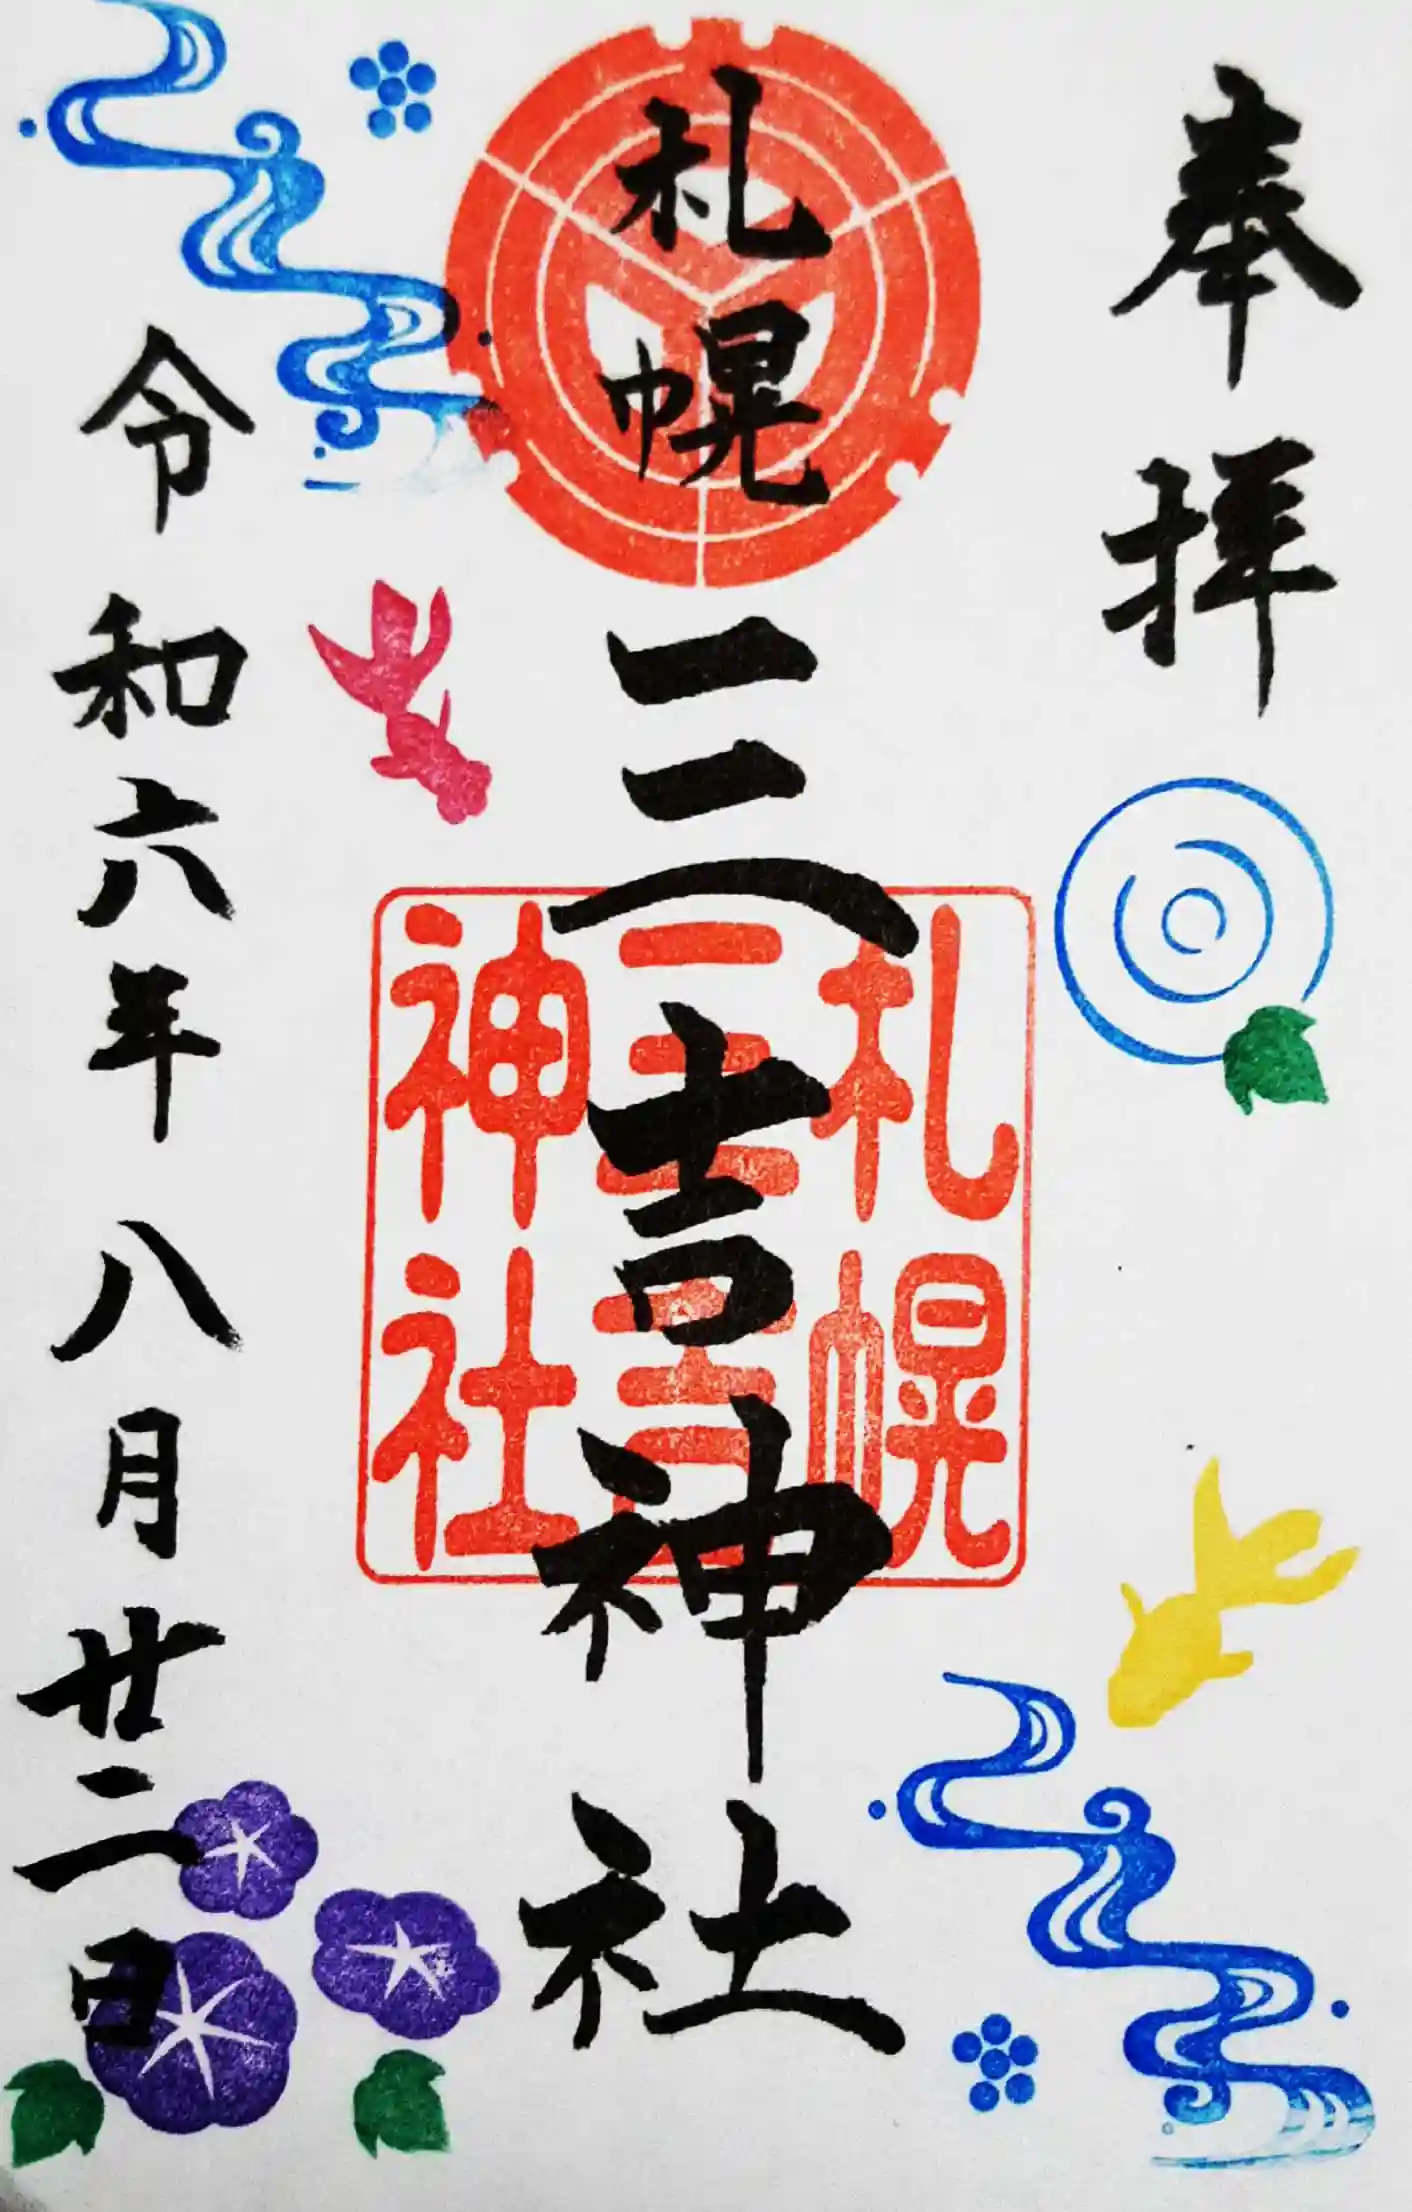 奉拝
札幌
三吉神社
札幌
三吉
神社
令和六年八月廿二日